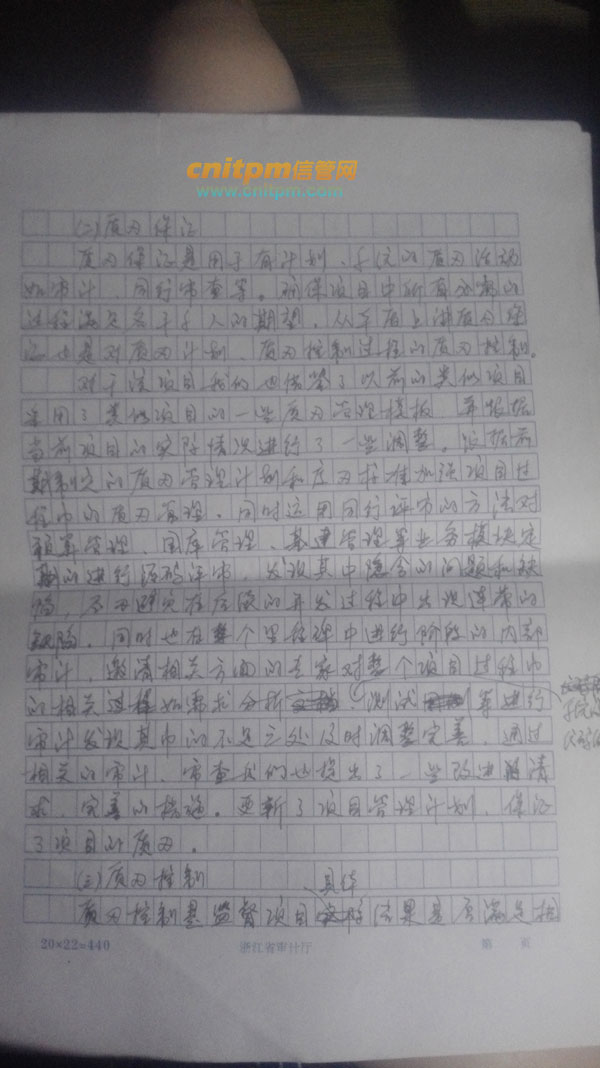 cnitpm信管网
www.cnitpm.com
(二)质量保证
质量保证是用于有计划、系统的质量活动
如审计、同行审查等。确保项目中所有必需的
过程满足各干系人的期望,从本质上讲质量保
证也是对质量计划、质量控制过程的质量控制。
对于该项目我们也借鉴了以前的类似项目
采用了类似项目的一些质量管理模板,并根据
当前项目的实际情况进行了一些调整。根据前
期制定的质量管理计划和质量标准加强项目过
程中的质量管理,同时运用同行评审的方法对
预算管理、国库管理、基建管理等业务模块定
期的进行源码评审,发现其中隐含的问题和缺
陷,尽量避免在后续的开发过程中出现连带的
缺陷。同时也在整个里程碑中进行阶段的内部
审计,邀请相关方面的专家对整个项目过程中
的相关过程如需求分析、测试等进行
审计发现其中的不足之处及时调整完善,通过
相关的审计、审查我们也提出了一些改进请
求、完善的措施。更新了项目管理计划,保证
了项目的质量。
(三)质量控制
质量控制是监督项目具体结果是否满足相
20×22=440 浙江省审计厅 第 页